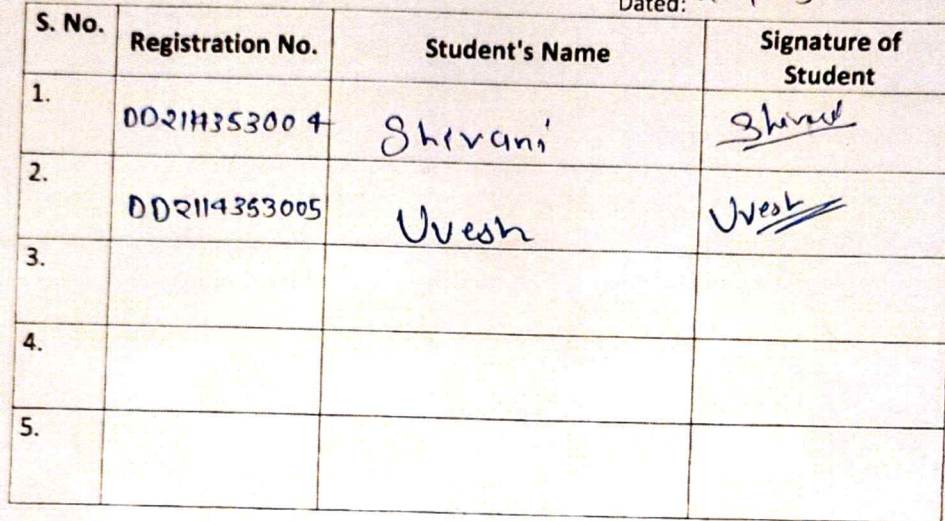 Dated:
S. No. Registration No. Student's Name Signature of
Student
1. DD2114353004 Shivani Shivani
2. DD2114353005 Uvesh Uvesh
3.
4.
5.